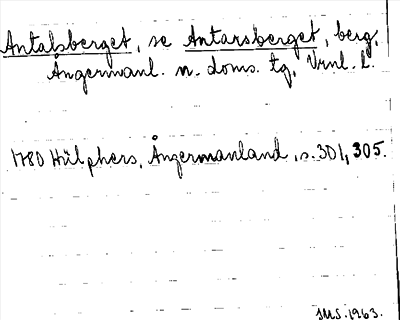 Antalsberget, se Antarsberget, berg,
Ångermanl. n. doms. tg, Vrnl. l.
1780 Hülphers, Ångermanland, s. 301, 305.
JMS. 1963.